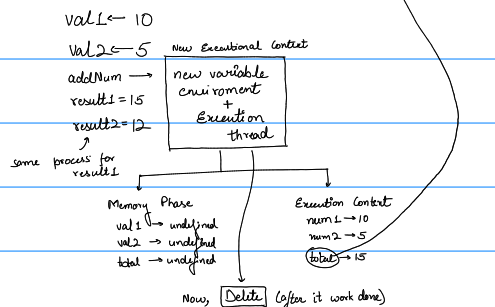 val1 ← 10
val2 ← 5
addNum →
result1 = 15
result2 = 12
same process for
result1
New Executional Context
new variable
enviroment
+
Execution
thread
Memory Phase
val1 → undefined
val2 → undefined
total → undefined
Execution Context
num1 → 10
num2 → 5
total → 15
Now, Delete (after it work done)